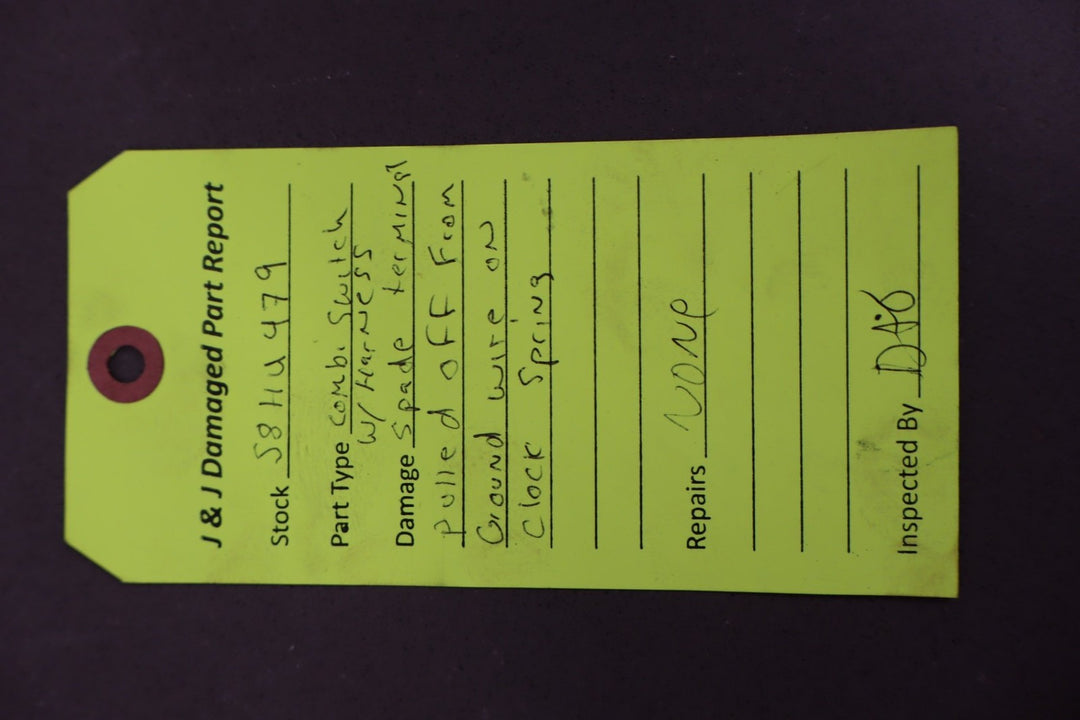 J & J Damaged Part Report
Stock S8HU479
Part Type Combi Switch
W/ Harness
Damage Spade terminal
pulled off From
Ground wire on
Clock Spring
Repairs NONe
Inspected By